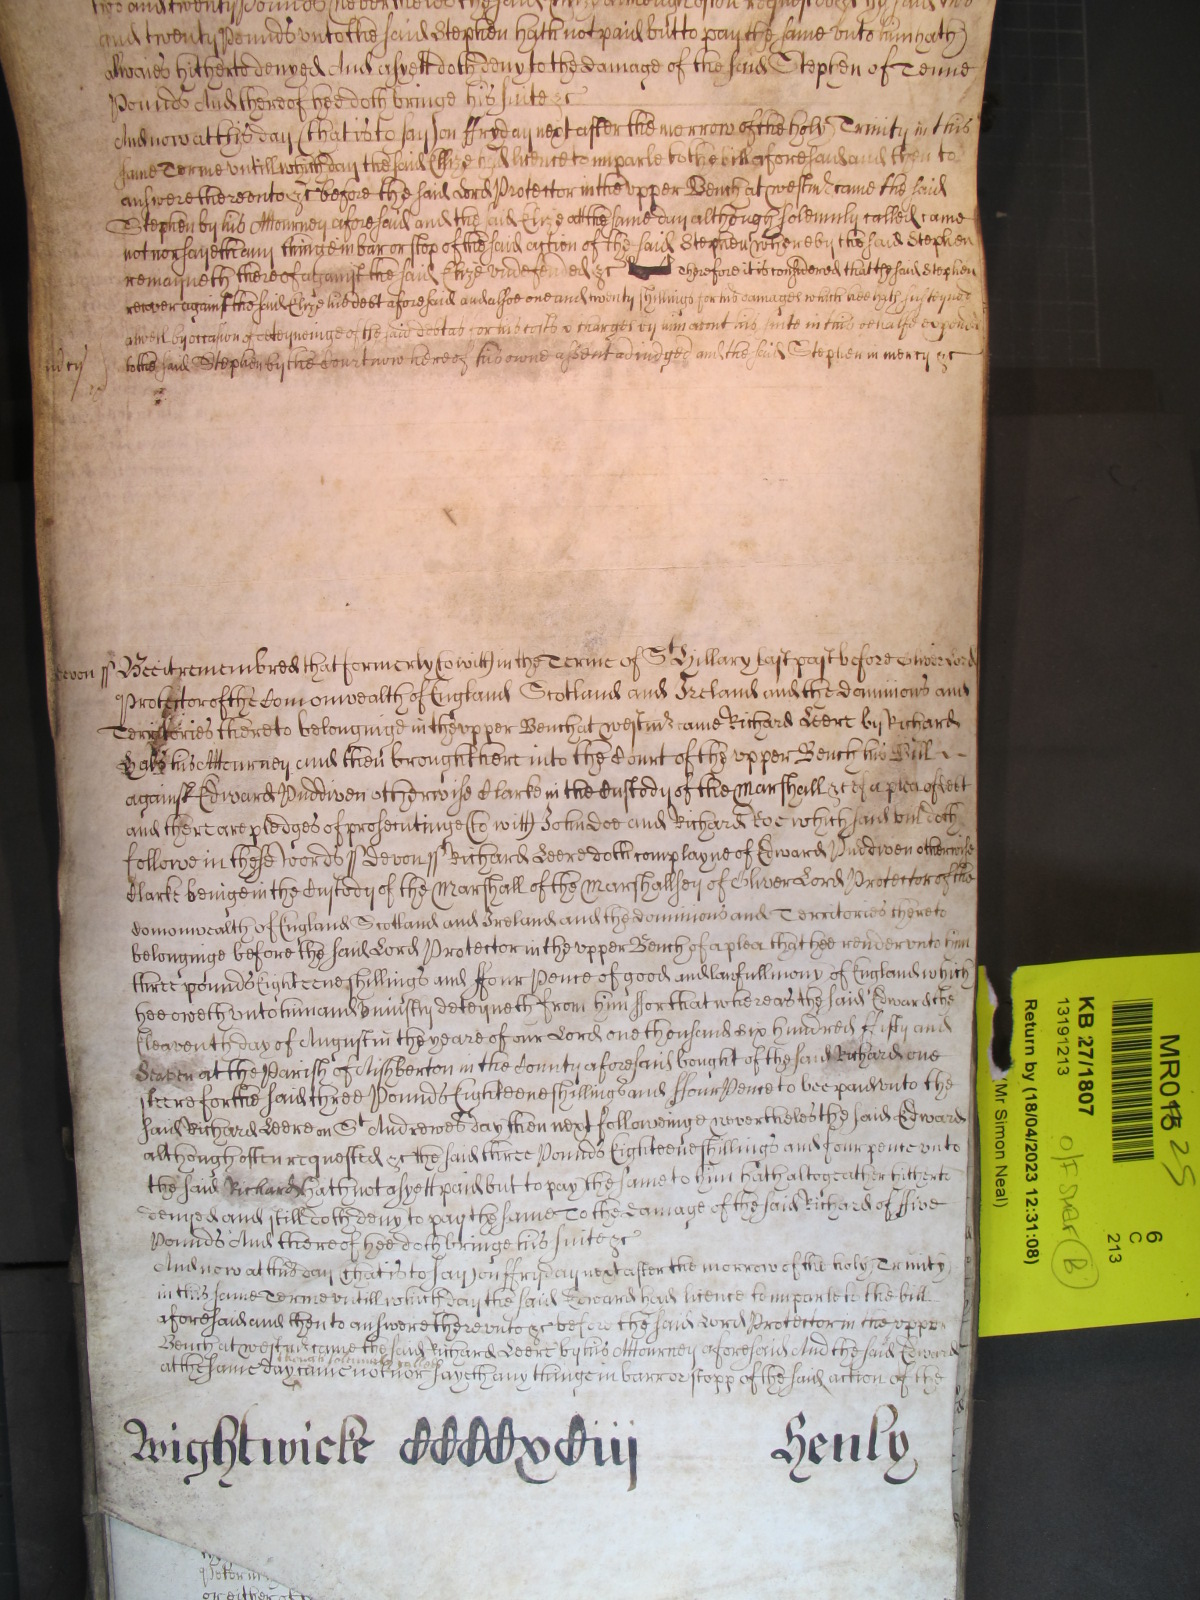 and twenty Pounds unto the said Stephen hath not paid but to pay the same unto him hath
alwaies hitherto denyed And as yett doth deny to the damage of the said Stephen of Tenne
Pounds And thereof hee doth bringe his suite &c
And now at this day (that is to say) on ffryday next after the morrow of the holy Trinity in this
same Terme untill which day the said Elize had licence to imparle to the bill aforesaid and then to
answere thereunto &c before the said Lord Protector in the upper Bench at Westmr came the said
Stephen by his Attourney aforesaid and the said Elize att the same day although solemnly called came
not nor sayeth any thinge in bar or stop of the said action of the said Stephen whereby the said Stephen
remayneth thereof against the said Elize undefended &c Therefore it is considered that the said Stephen
recover against the said Elize his debt aforesaid and alsoe one and twenty shillings for his damages which hee hath susteyned
aswell by occasion of deteyneinge of the said debt as for his costs & charges by him about his suite in this behalfe expended
to the said Stephen by the Court now here of his owne assent adjudged and the said Elize in mercy &c
Devon ss Bee it remembred that formerly (to witt) in the Terme of St Hillary last past before Oliver Lord
Protector of the Comonwealth of England Scotland and Ireland and the dominions and
Territories thereto belonginge in the upper Bench at Westmr came Richard Leere by Richard
his Attourney and then brought here into the Court of the upper Bench his Bill
against Edward Puddiven otherwise Clarke in the Custody of the Marshall &c of a plea of debt
and there are pledges of prosecutinge (to witt) John Doe and Richard Roe which said bill doth
followe in these words ss Devon ss Richard Leere doth complayne of Edward Puddiven otherwise
Clarke beinge in the Custody of the Marshall of the Marshallsey of Oliver Lord Protector of the
Comonwealth of England Scotland and Ireland and the dominions and Territories thereto
belonginge before the said Lord Protector in the upper Bench of a plea that hee render unto him
three pounds Eighteene shillings and ffour Pence of good and lawfull mony of England which
hee oweth unto him and uniustly deteyneth from him ffor that whereas the said Edward the
Eleaventh day of August in the yeare of our Lord one thousand six hundred ffifty and
Seaven at the Parish of Aishberton in the County aforesaid bought of the said Richard one
steere for the said three Pounds Eighteene shillings and ffour Pence to bee paid unto the
said Richard Leere on St Andrewes day then next followeinge neverthelesse the said Edward
although often requested &c the said three Pounds Eighteene shillings and four pence unto
the said Richard hath not as yett paid but to pay the same to him hath altogeather hitherto
denyed and still doth deny to pay the same To the damage of the said Richard of ffive
Pounds And thereof hee doth bringe his suite &c
And now at this day (that is to say) on ffryday next after the morrow of the holy Trinity
in this same Terme untill which day the said Edward had licence to imparle to the bill
aforesaid and then to answere thereunto &c before the said Lord Protector in the upper
Bench at Westmr came the said Richard Leere by his Attourney aforesaid And the said Edward
though solemnly called
at the same day came not nor sayeth any thinge in barr or stopp of the said action of the
Wightwicke CCCCxCiij Henly
MR018 25
6
C
213
KB 27/1807
13191213
Return by (18/04/2023 12:31:08)
(Mr Simon Neal)
B